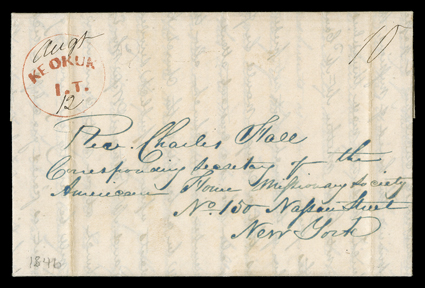 Augt
10
KEOKUK
I.T.
12
Rev. Charles Hall
Corresponding Secretary of the
American Home Missionary Society
No. 150 Nassau Street
New York
1846